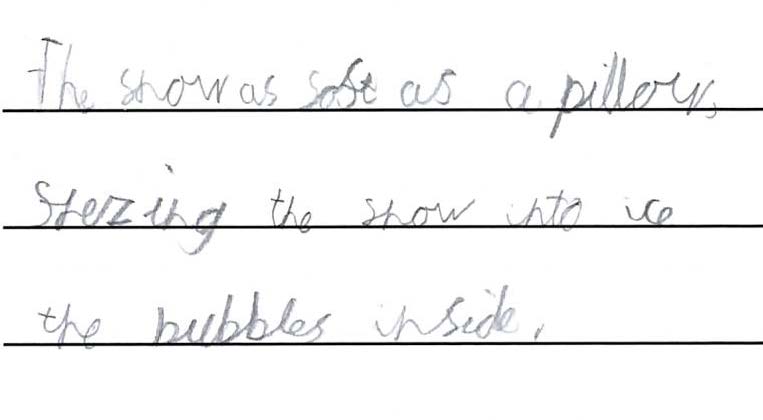 The snow as soft as a pillow,
Frezing the snow into ice
the bubbles inside,